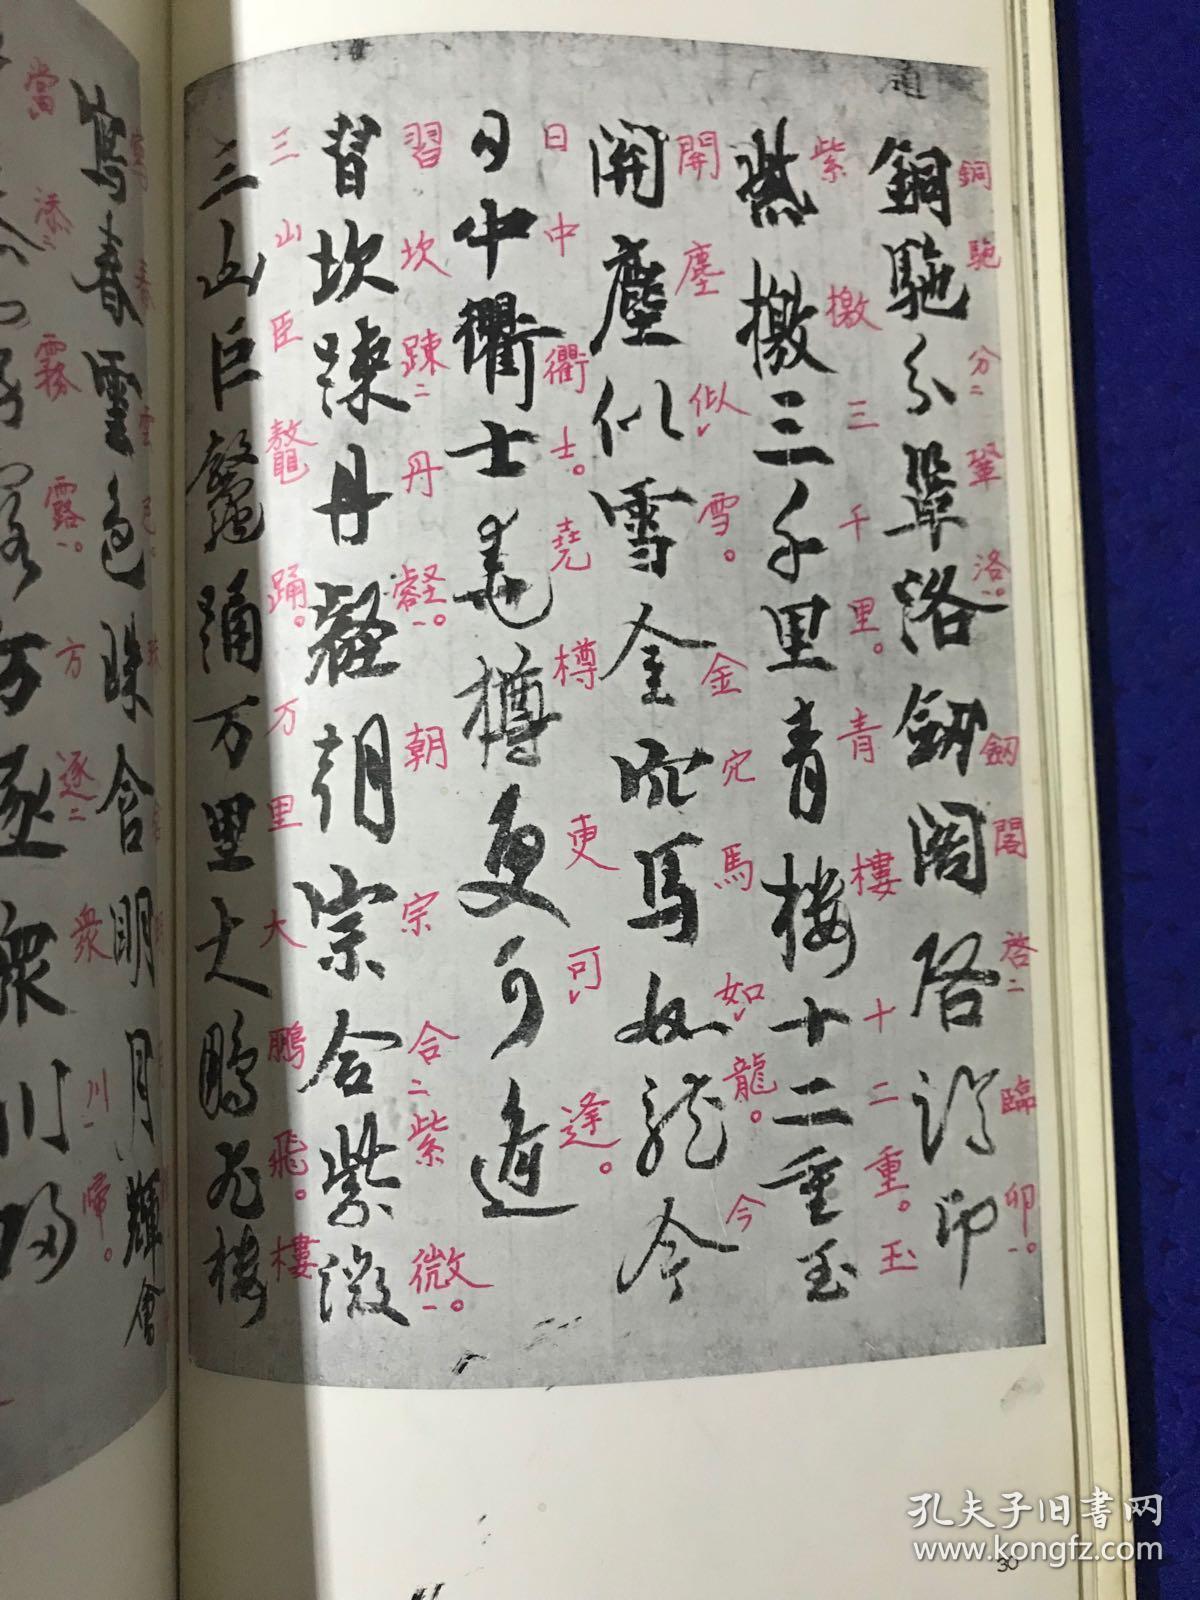 銅駞分鞏洛劒閣啓臨卭
銅駞分二鞏洛一。劒閣啓二臨卭一。
紫檄三千里青樓十二重玉
紫檄三千里。青樓十二重。玉
開塵似雪金穴馬如龍今
開塵似雪。金穴馬如龍。今
日中衢士堯樽更可逢
日中衢士。堯樽更可逢。
習坎疎丹壑朝宗合紫微
習坎疎二丹壑一。朝宗合二紫微一。
三山巨鼇踊万里大鵬飛樓
三山臣鼇踊。万里大鵬飛。樓
寫春雲色珠含明月輝會
方逐衆川歸
當添二霧露一。方逐二衆川一歸。
孔夫子旧书网
www.kongfz.com
30